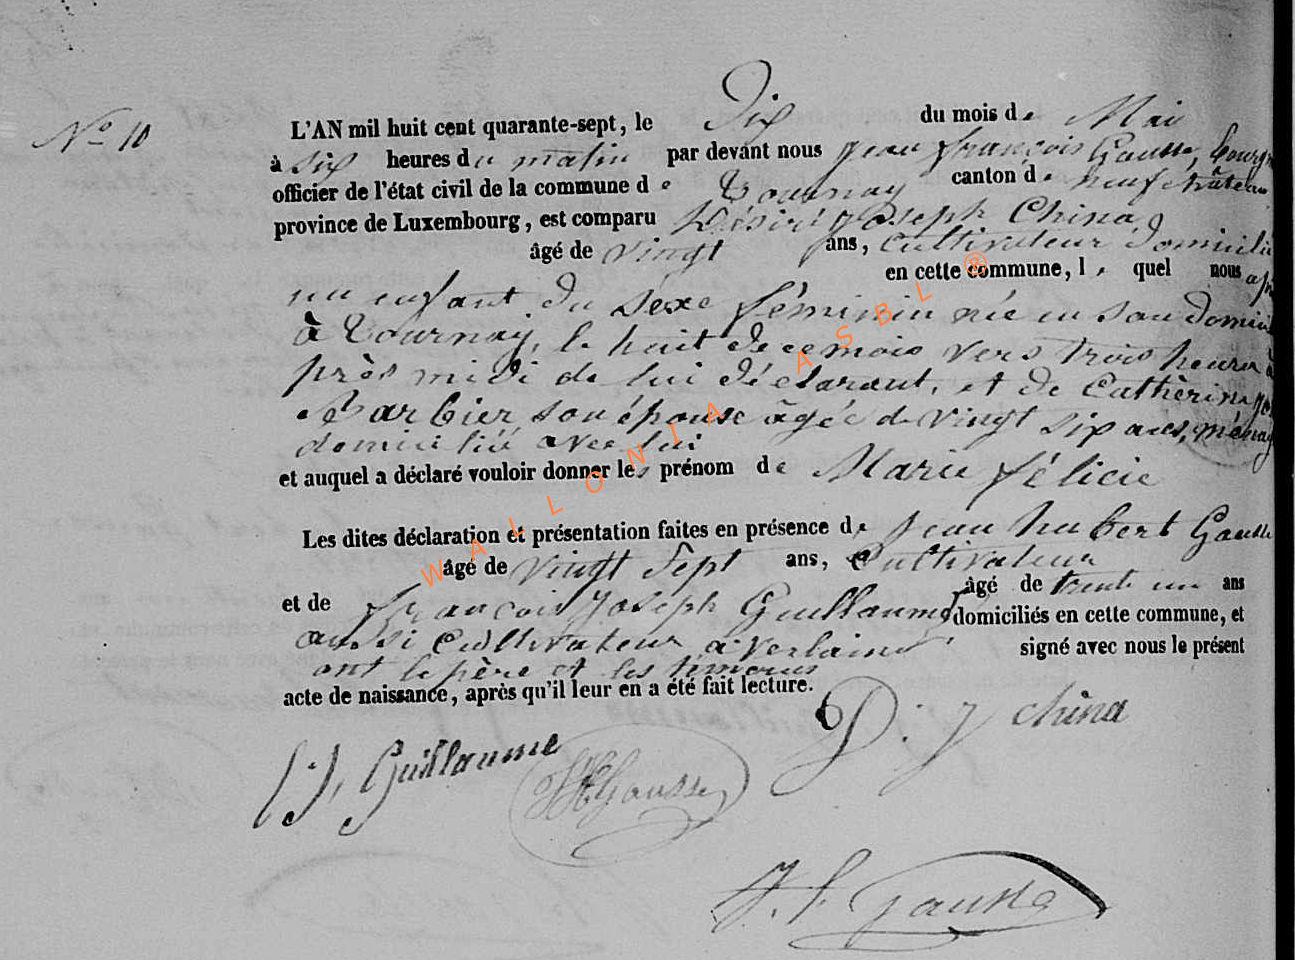 N.o 10
L'AN mil huit cent quarante-sept, le Dix du mois de Mai
à six heures du matin par devant nous jean françois Gausse, bourg
officier de l'état civil de la commune de Tournay canton de neufchâteau
province de Luxembourg, est comparu Désiré joseph China,
âgé de vingt ans, Cultivateur domicilié
en cette commune, lequel nous a
un enfant du sexe féminin née en son domi
à Tournay, le huit de ce mois vers trois heures
près midi de lui déclarant, et de Cathérine
Barbier son épouse âgée de vingt six ans, ménag
domicilié avec lui
et auquel a déclaré vouloir donner les prénom de Marie félicie
Les dites déclaration et présentation faites en présence de jean hubert Gausse
âgé de vingt sept ans, Cultivateur
et de françois joseph Guillaume âgé de trente un ans
aussi cultivateur à verlaine domiciliés en cette commune, et
ont le père et les témoins signé avec nous le présent
acte de naissance, après qu'il leur en a été fait lecture.
D. J China
f. J. Guillaume
JH Gausse
J. f. Gausse
WALLONIA ASBL ®